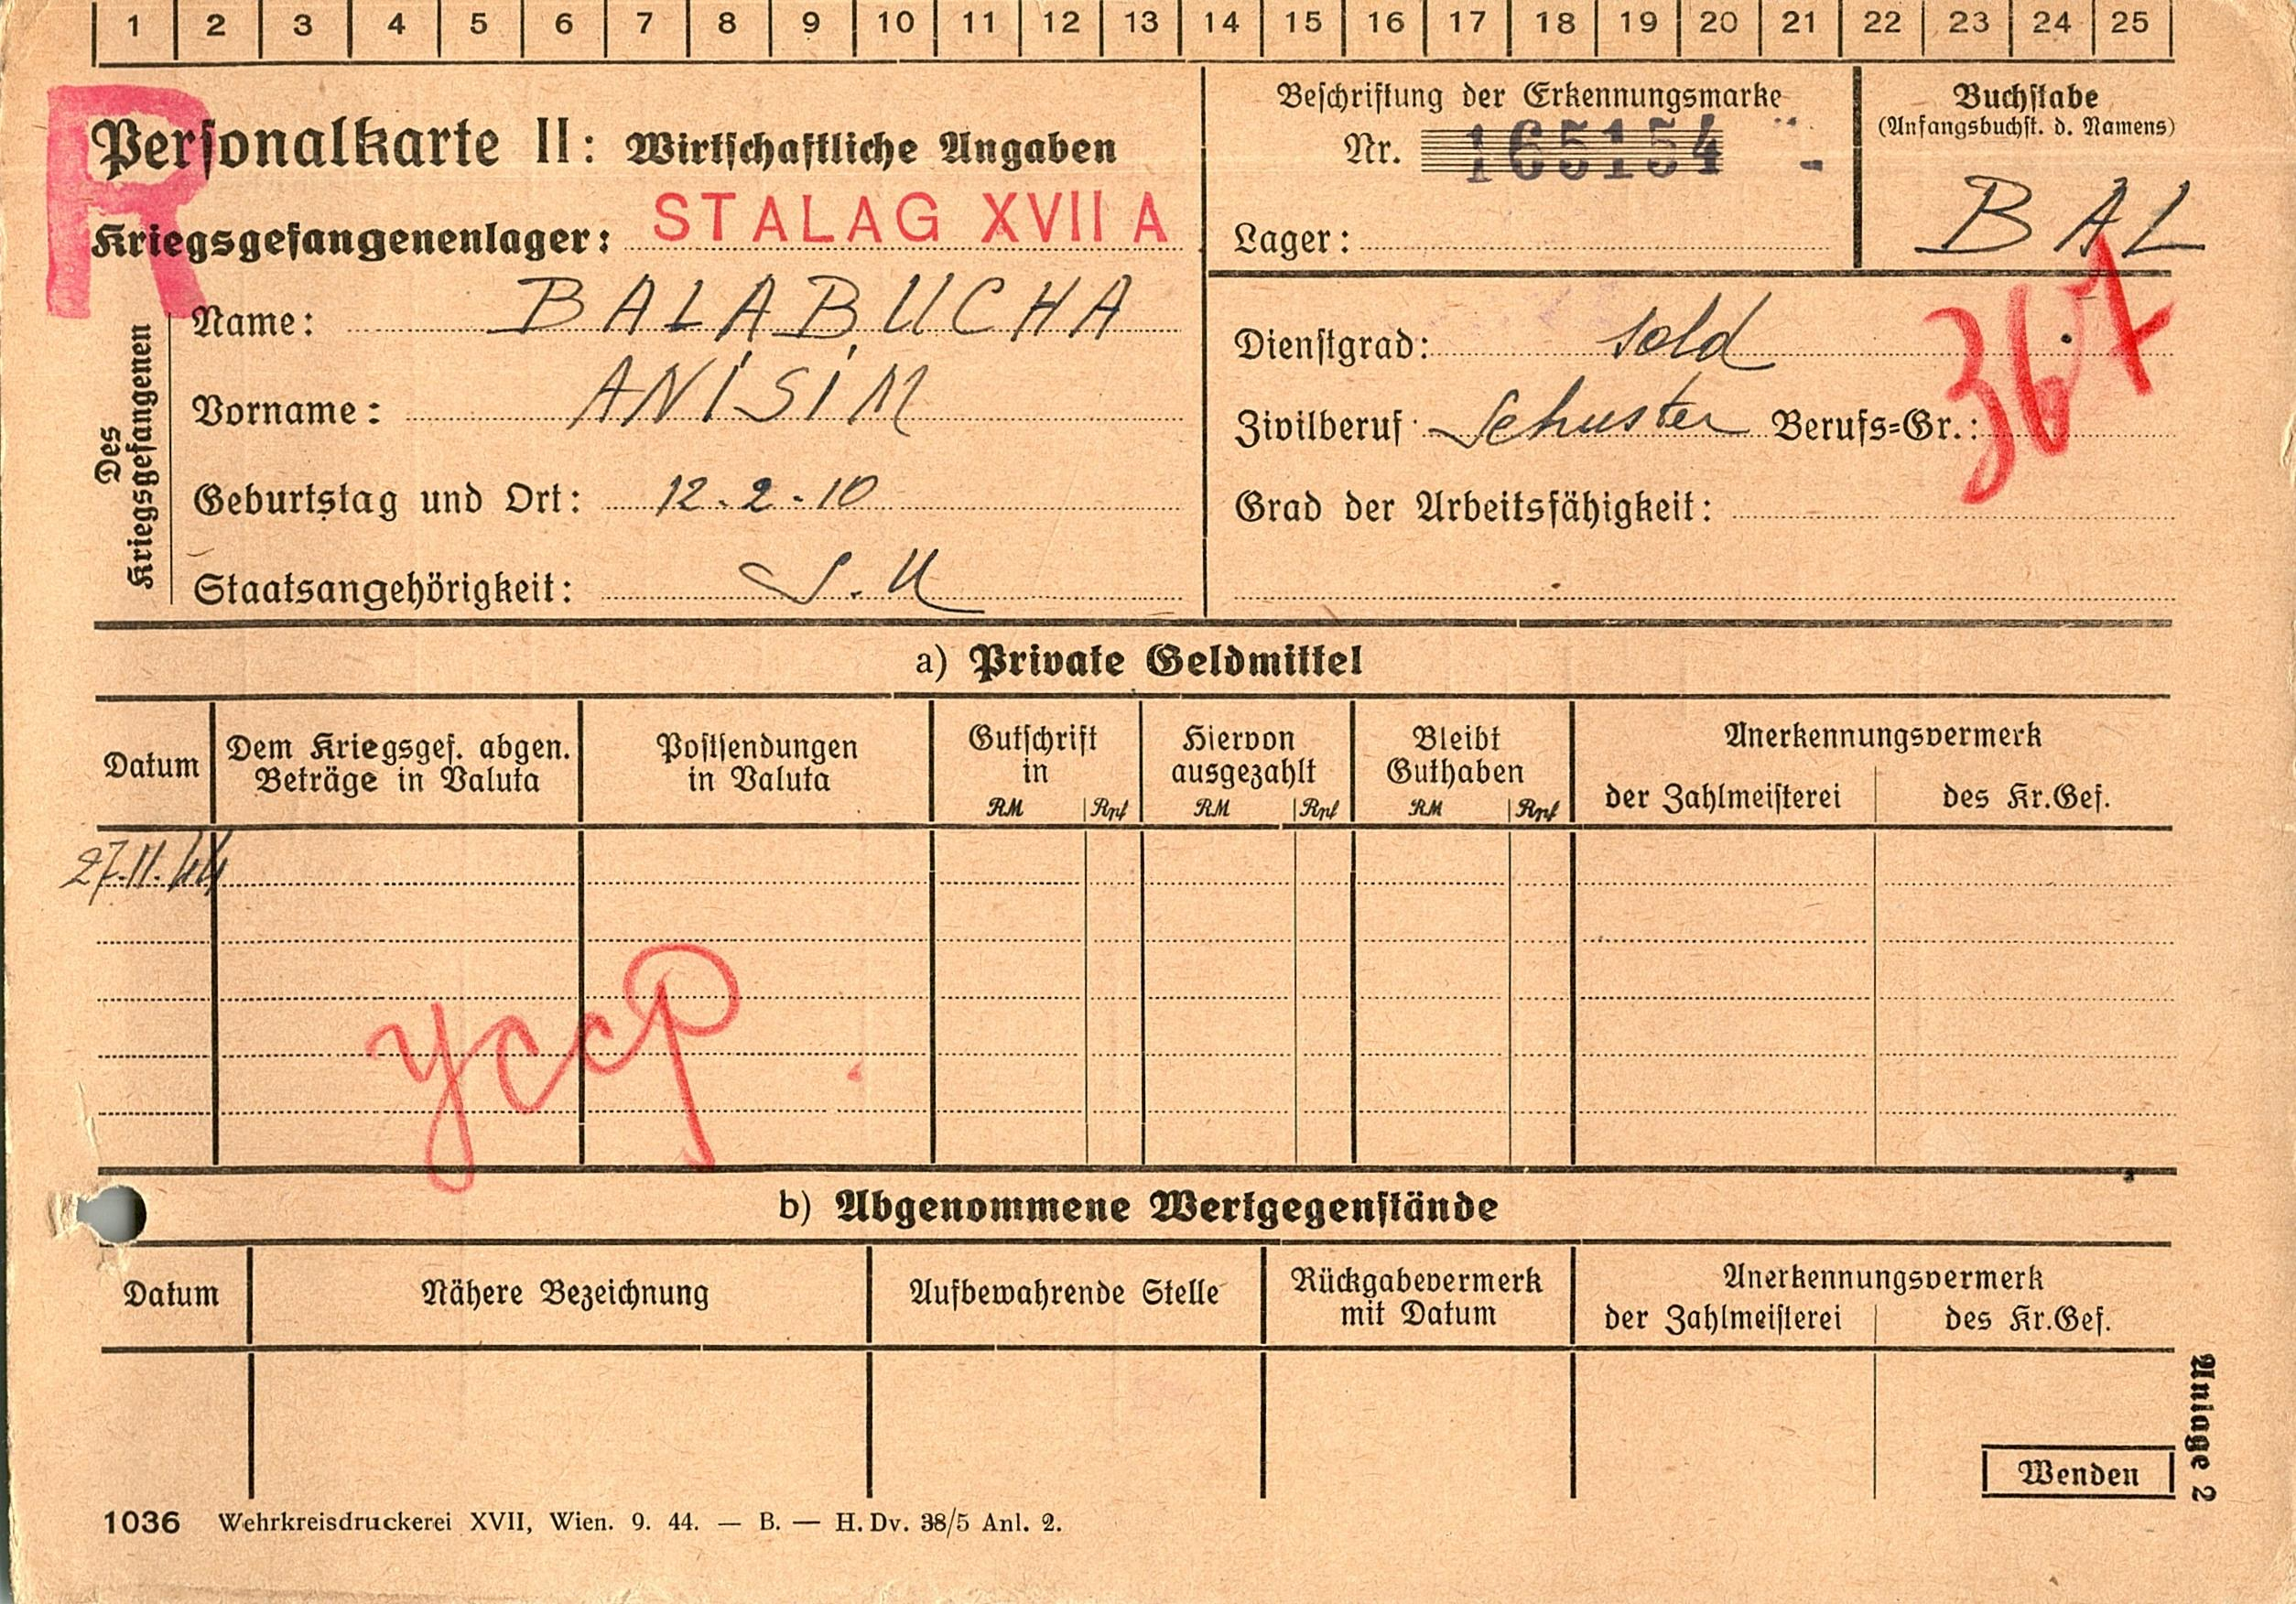 1 2 3 4 5 6 7 8 9 10 11 12 13 14 15 16 17 18 19 20 21 22 23 24 25
R
Personalkarte II: Wirtschaftliche Angaben
Kriegsgefangenenlager: STALAG XVII A
Beschriftung der Erkennungsmarke
Nr. 165154
Lager:
Buchstabe
(Anfangsbuchst. d. Namens)
BAL
Des
Kriegsgefangenen
Name: BALABUCHA
Vorname: ANISIM
Geburtstag und Ort: 12.2.10
Staatsangehörigkeit: S.U
Dienstgrad: Sold
Zivilberuf Schuster Berufs=Gr.:
367
Grad der Arbeitsfähigkeit:
a) Private Geldmittel
Datum
Dem Kriegsgef. abgen.
Beträge in Valuta
Postsendungen
in Valuta
Gutschrift
in
RM Rpf
Hiervon
ausgezahlt
RM Rpf
Bleibt
Guthaben
RM Rpf
Anerkennungsvermerk
der Zahlmeisterei
des Kr.Gef.
27.11.44
усср
b) Abgenommene Wertgegenstände
Datum
Nähere Bezeichnung
Aufbewahrende Stelle
Rückgabevermerk
mit Datum
Anerkennungsvermerk
der Zahlmeisterei
des Kr.Gef.
Anlage 2
Wenden
1036 Wehrkreisdruckerei XVII, Wien. 9. 44. — B. — H. Dv. 38/5 Anl. 2.